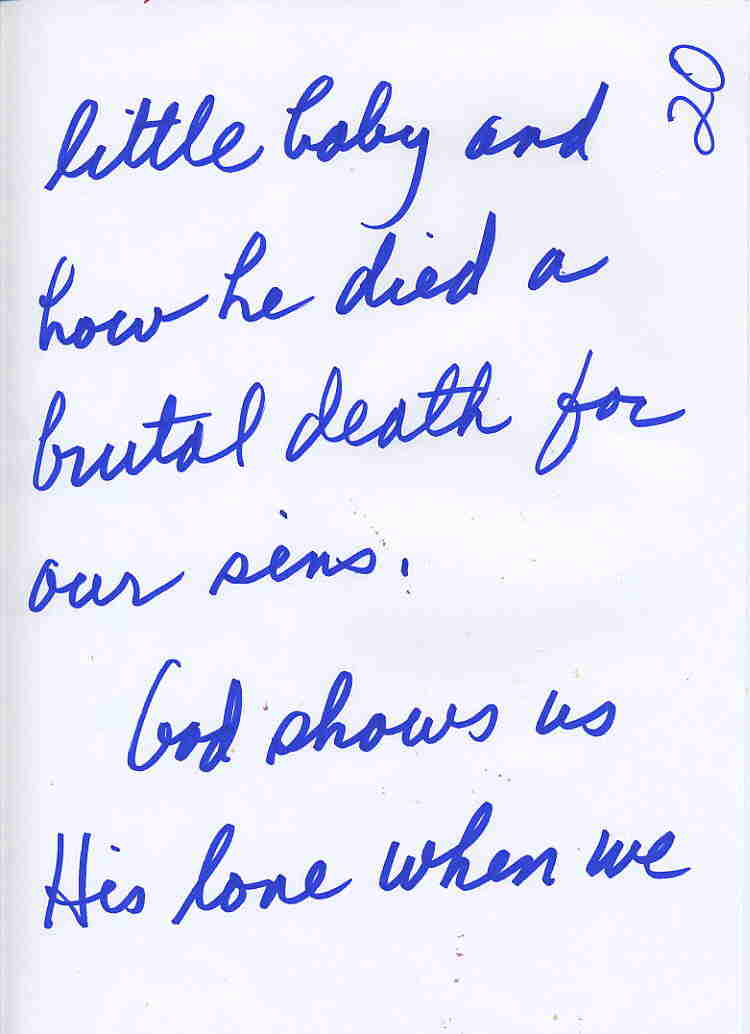 20
little baby and
how he died a
brutal death for
our sins.
God shows us
His love when we